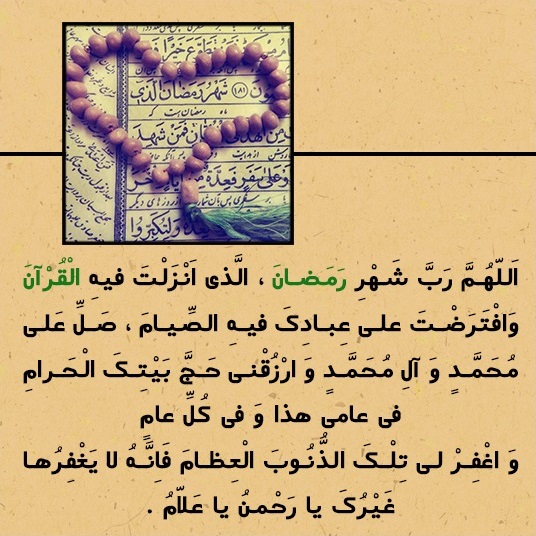 خَيْرًا
تَطَوَّعَ
شَهْرُ رَمَضانَ الَّذی
فَمَنْ شَهِدَ
سَفَرٍ فَعِدَّةٌ
وَلِتُكَبِّرُوا
اَللّهُمَّ رَبَّ شَهْرِ رَمَضانَ ، الَّذی اَنْزَلْتَ فیهِ الْقُرْآنَ
وَافْتَرَضْتَ علی عِبادِکَ فیهِ الصِّیامَ ، صَلِّ عَلی
مُحَمَّدٍ وَ آلِ مُحَمَّدٍ وَ ارْزُقْنی حَجَّ بَیْتِکَ الْحَرامِ
فی عامی هذا وَ فی کُلِّ عامٍ
وَ اغْفِرْ لی تِلْکَ الذُّنُوبَ الْعِظامَ فَاِنَّهُ لا یَغْفِرُها
غَیْرُکَ یا رَحْمنُ یا عَلاّمُ .